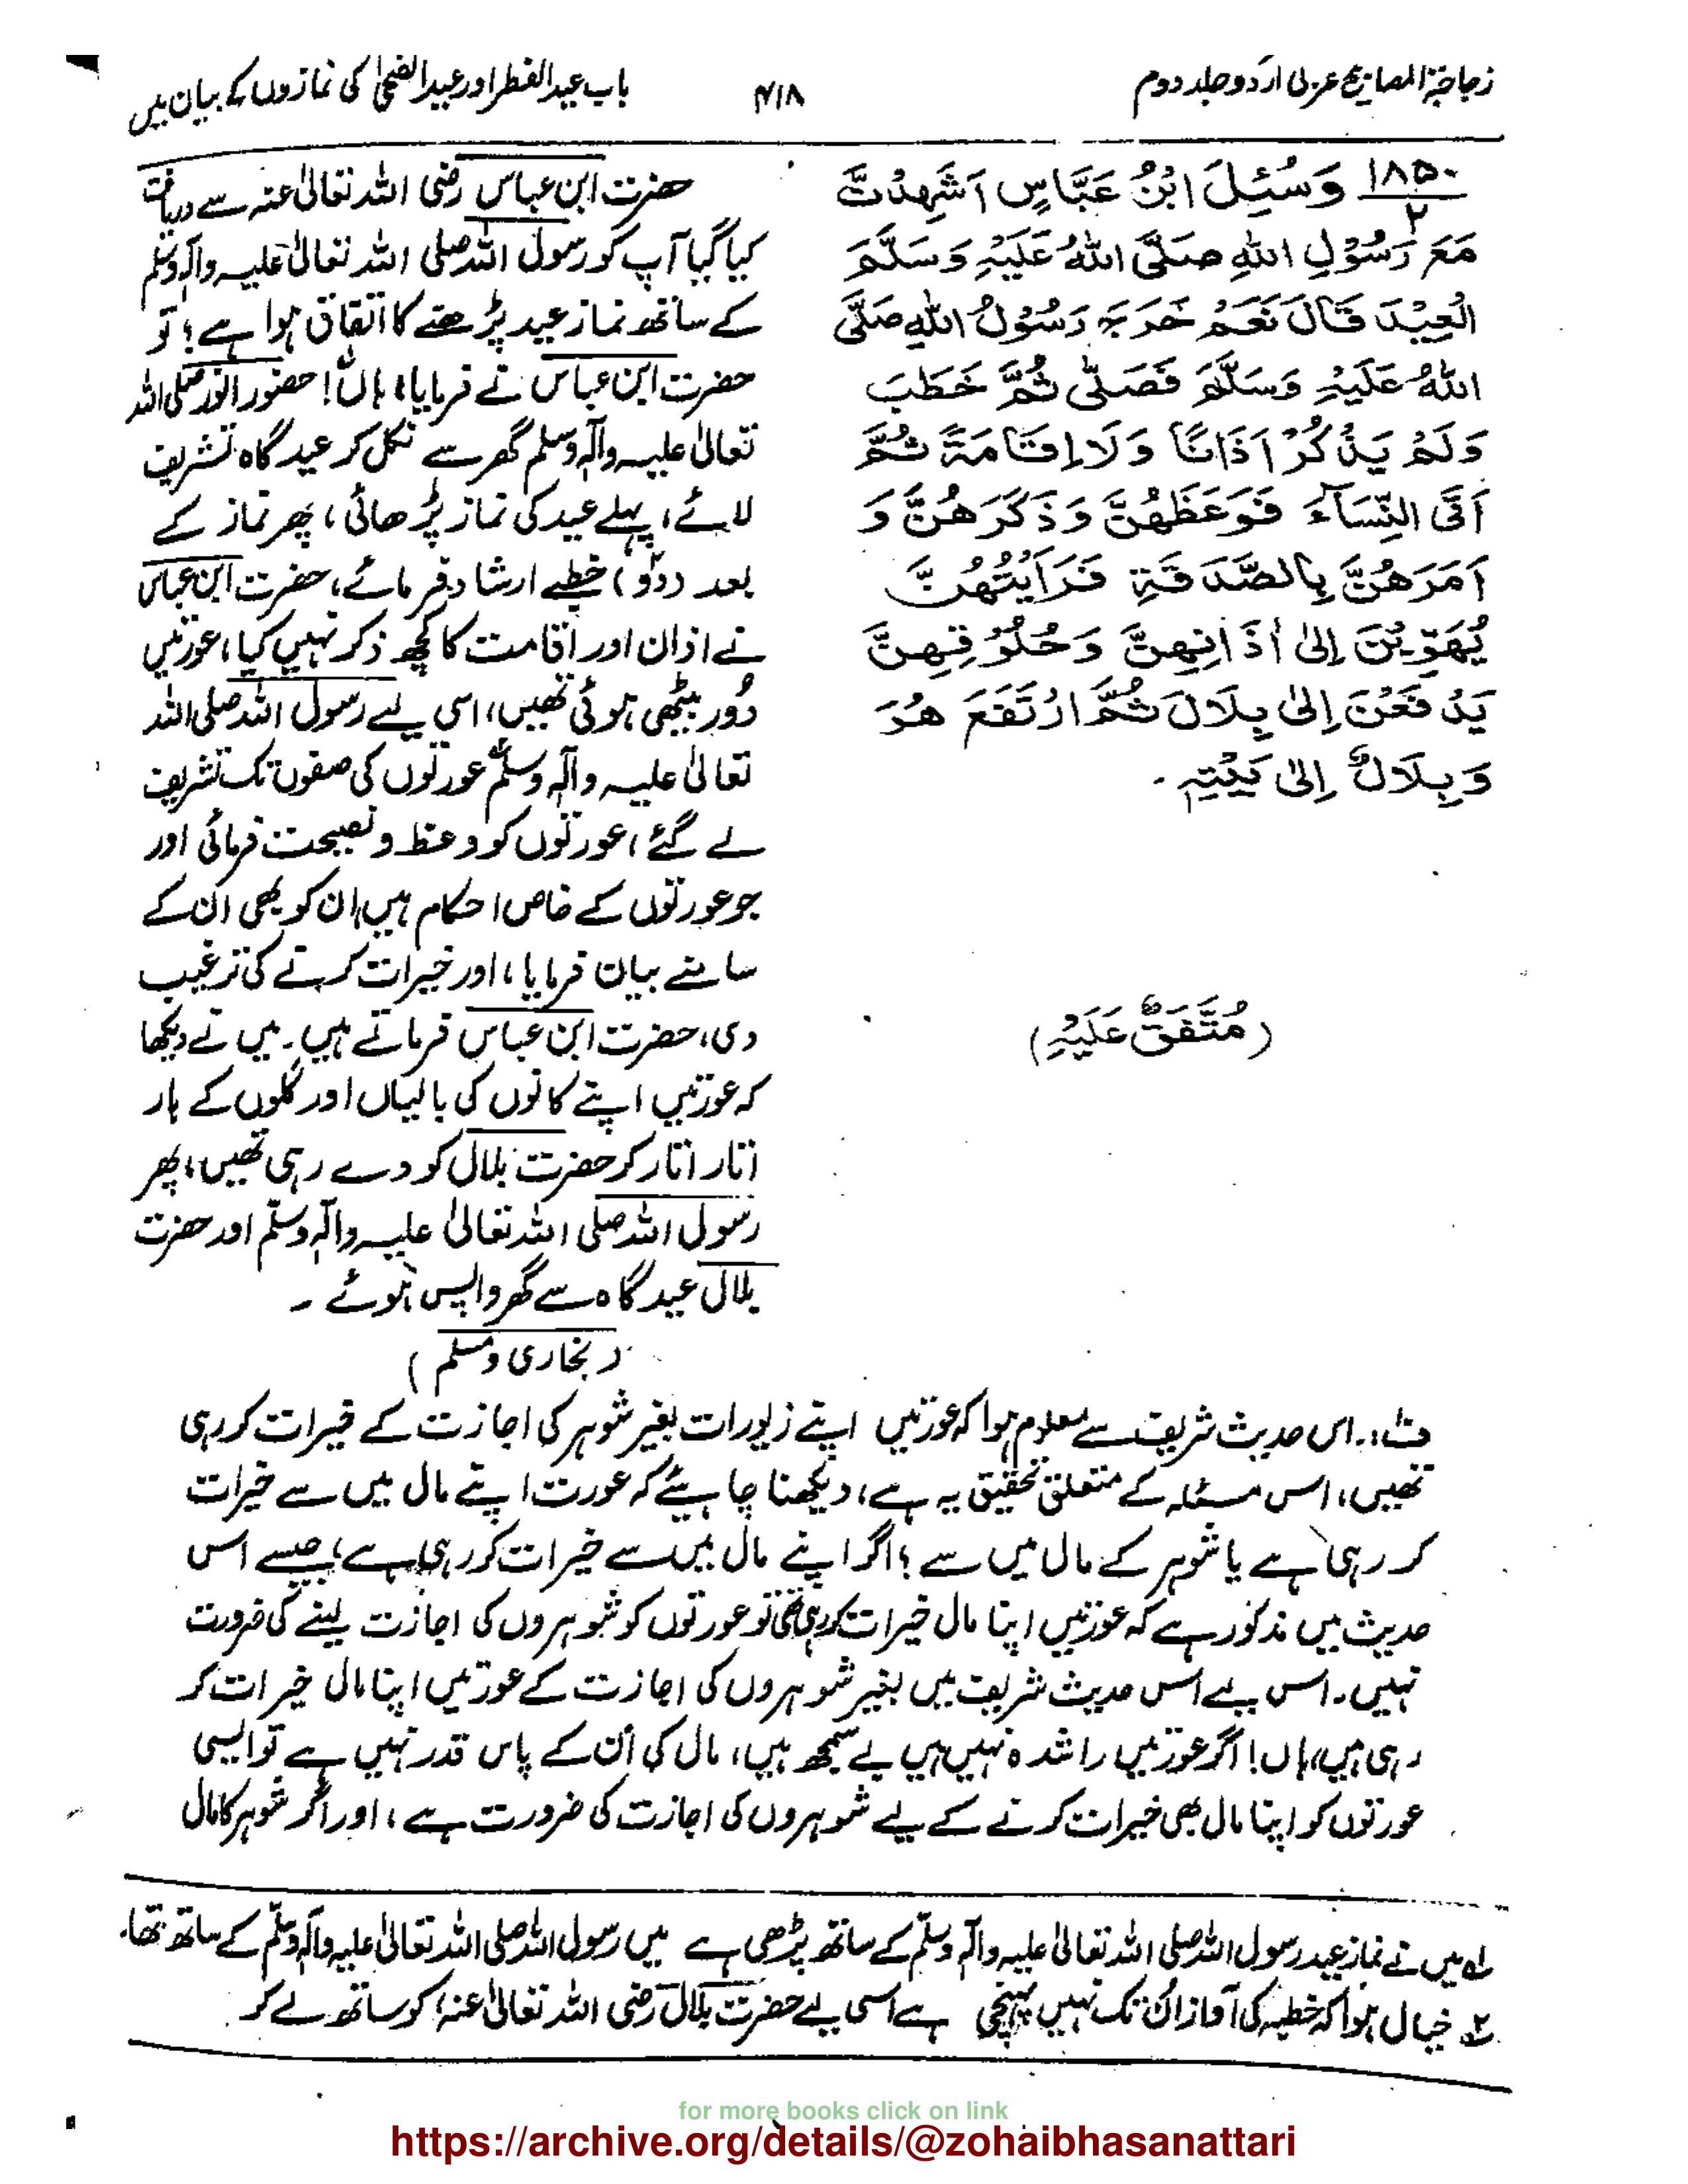 زجاجۃ المصابیح عربی اردو جلد دوم
۴۱۸
باب عید الفطر اور عید الضحیٰ کی نمازوں کے بیان میں
۱۸۵۰
۲
وَسُئِلَ ابْنُ عَبَّاسٍ اَشَهِدْتَّ
مَعَ رَسُوْلِ اللهِ صَلَّی اللهُ عَلَیْہِ وَسَلَّمَ
الْعِیْدَ قَالَ نَعَمْ خَرَجَ رَسُوْلُ اللهِ صَلَّی
اللهُ عَلَیْہِ وَسَلَّمَ فَصَلّٰی ثُمَّ خَطَبَ
وَلَمْ یَذْکُرْ اَذَانًا وَلَا اِقَامَةً ثُمَّ
اَتَی النِّسَآءَ فَوَعَظَهُنَّ وَذَکَرَهُنَّ وَ
اَمَرَهُنَّ بِالصَّدَقَةِ فَرَاَیْتُهُنَّ
یُهَوِّیْنَ اِلٰی اٰذَانِهِنَّ وَحُلُوْقِهِنَّ
یَدْفَعْنَ اِلٰی بِلَالَ ثُمَّ ارْتَفَعَ هُوَ
وَبِلَالٌ اِلٰی بَیْتِہٖ ۔
(مُتَّفَقٌ عَلَیْہِ)
حضرت ابن عباس رضی اللہ تعالیٰ عنہ سے دریافت
کیا گیا آپ کو رسول اللہ صلی اللہ تعالیٰ علیہ وآلہ وسلم
کے ساتھ نماز عید پڑھنے کا اتفاق ہوا ہے؟ تو
حضرت ابن عباس نے فرمایا، ہاں! حضور انور صلی اللہ
تعالیٰ علیہ وآلہ وسلم گھر سے نکل کر عید گاہ تشریف
لائے، پہلے عید کی نماز پڑھائی، پھر نماز کے
بعد (دو) خطبے ارشاد فرمائے، حضرت ابن عباس
نے اذان اور اقامت کا کچھ ذکر نہیں کیا، عورتیں
دُور بیٹھی ہوئی تھیں، اسی لیے رسول اللہ صلی اللہ
تعالیٰ علیہ وآلہ وسلم عورتوں کی صفوں تک تشریف
لے گئے، عورتوں کو وعظ و نصیحت فرمائی اور
جو عورتوں کے خاص احکام ہیں ان کو بھی ان کے
سامنے بیان فرمایا، اور خیرات کرنے کی ترغیب
دی، حضرت ابن عباس فرماتے ہیں۔ میں نے دیکھا
کہ عورتیں اپنے کانوں کی بالیاں اور گلوں کے ہار
اتار اتار کر حضرت بلال کو دے رہی تھیں، پھر
رسول اللہ صلی اللہ تعالیٰ علیہ وآلہ وسلم اور حضرت
بلال عید گاہ سے گھر واپس ہوئے ۔
(بخاری و مسلم)
ف:۔ اس حدیث شریف سے معلوم ہوا کہ عورتیں اپنے زیورات بغیر شوہر کی اجازت کے خیرات کر رہی
تھیں، اس مسئلہ کے متعلق تحقیق یہ ہے، دیکھنا چاہیئے کہ عورت اپنے مال میں سے خیرات
کر رہی ہے یا شوہر کے مال میں سے؟ اگر اپنے مال میں سے خیرات کر رہی ہے؛ جیسے اس
حدیث میں مذکور ہے کہ عورتیں اپنا مال خیرات کر رہی تھی تو عورتوں کو شوہروں کی اجازت لینے کی ضرورت
نہیں۔ اس لیے اس حدیث شریف میں بغیر شوہروں کی اجازت کے عورتیں اپنا مال خیرات کر
رہی ہیں، ہاں! اگر عورتیں راشدہ نہیں ہیں بے سمجھ ہیں، مال کی اُن کے پاس قدر نہیں ہے تو ایسی
عورتوں کو اپنا مال بھی خیرات کرنے کے لیے شوہروں کی اجازت کی ضرورت ہے، اور اگر شوہر کا مال
۱؎ میں نے نماز عید رسول اللہ صلی اللہ تعالیٰ علیہ وآلہ وسلم کے ساتھ پڑھی ہے میں رسول اللہ صلی اللہ تعالیٰ علیہ وآلہ وسلم کے ساتھ تھا۔
۲؎ خیال ہوا کہ خطبہ کی آواز اُن تک نہیں پہنچی ہے اسی لیے حضرت بلال رضی اللہ تعالیٰ عنہ، کو ساتھ لے کر
for more books click on link
https://archive.org/details/@zohaibhasanattari